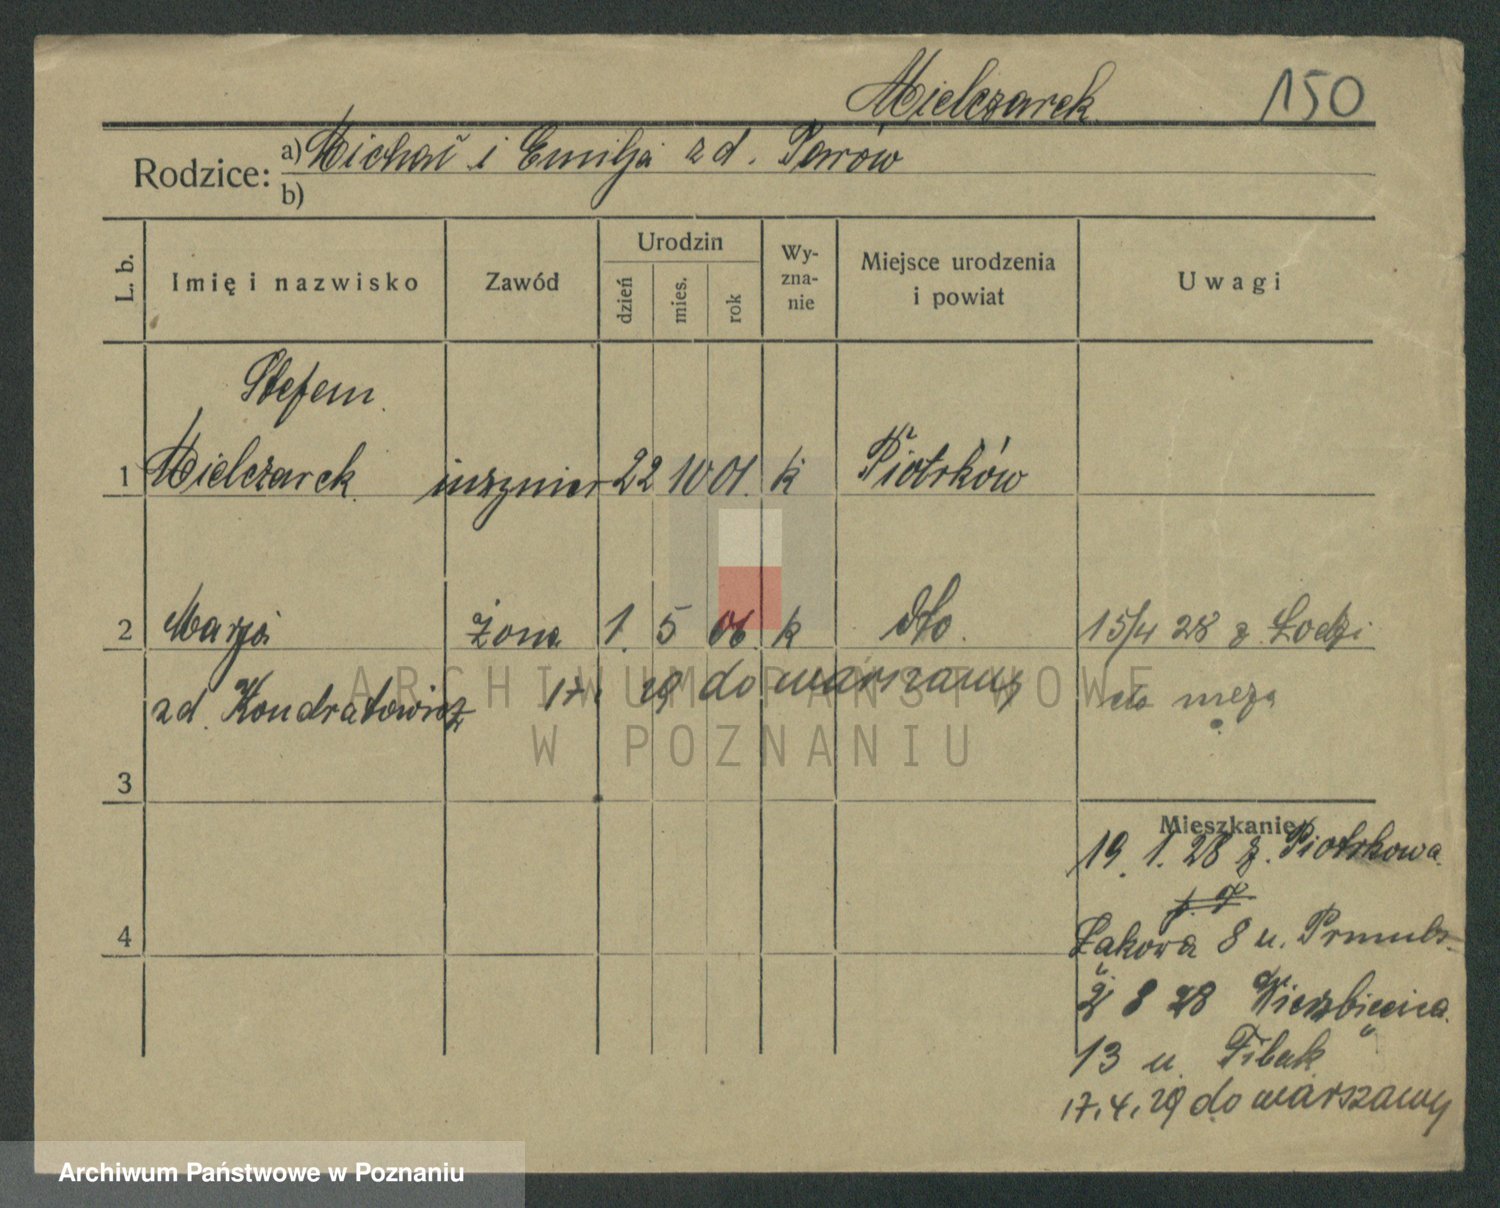 Mielczarek 150
Rodzice: a) Michał i Emilja zd. Parów
b)
L. b. Imię i nazwisko Zawód Urodzin dzień mies. rok Wy-zna-nie Miejsce urodzenia i powiat Uwagi
Stefan
1 Mielczarek inżynier 22 10 01. k Piotrków
2 Marja żona 1. 5 06. k dto. 15/4 28 z Łodzi
zd. Kondratowicz 17. 29 do warszawy do męża
3
Mieszkanie
19. 1. 28 z. Piotrkowa
4
Łąkowa 8 u.
2 8 28 Wierzbięcice
13 u. Fibak
17.4.29 do warszawy
ARCHIWUM PAŃSTWOWE
W POZNANIU
Archiwum Państwowe w Poznaniu